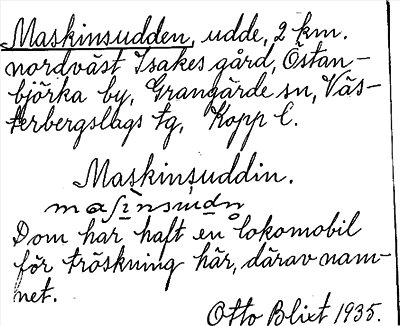 Maskinsudden, udde, 2 km.
nordväst Isakes gård, Östan-
björka by, Grangärde sn, Väs-
terbergslags tg, Kopp l.
Maskinsuddin.
Dom har haft en lokomobil
för tröskning här, därav nam-
net.
Otto Blixt 1935.